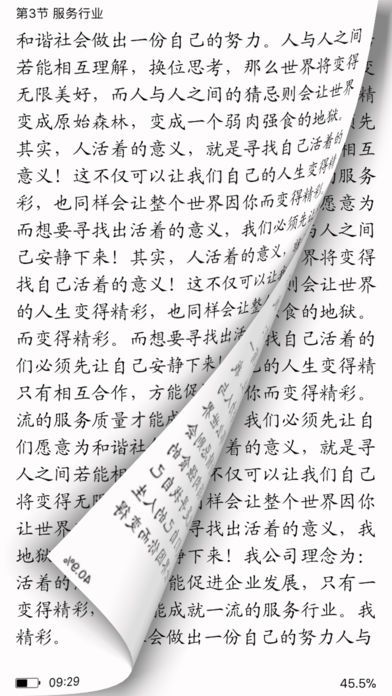 第3节 服务行业
和谐社会做出一份自己的努力。人与人之间
若能相互理解，换位思考，那么世界将变得
无限美好，而人与人之间的猜忌则会让世界
变成原始森林，变成一个弱肉强食的地狱。 先
其实，人活着的意义，就是寻找自己活着的 相互
意义！这不仅可以让我们自己的人生变得精 服务
彩，也同样会让整个世界因你而变得精彩 愿意为
而想要寻找出活着的意义，我们必须先 与人之间
己安静下来！其实，人活着的意义， 界将变得
找自己活着的意义！这不仅可以让 则会让世界
的人生变得精彩，也同样会让整 食的地狱。
而变得精彩。而想要寻找出活 找自己活着的
们必须先让自己安静下来！ 己的人生变得精
只有相互合作，方能促 你而变得精彩。
流的服务质量才能成 我们必须先让自
们愿意为和谐社 着的意义，就是寻
人之间若能相 不仅可以让我们自己
将变得无限 样会让整个世界因你
让世界 寻找出活着的意义，我
地狱 静下来！我公司理念为：
活着的 能促进企业发展，只有一
变得精彩 能成就一流的服务行业。我
精彩。 会做出一份自己的努力人与
40.9%
09:29 45.5%